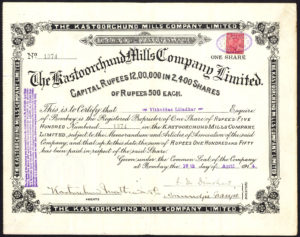 THE KASTOORCHUND MILLS COMPANY LIMITED.
No. 1374
ONE SHARE
The Kastoorchund Mills Company Limited.
CAPITAL RUPEES 12,00,000 IN 2,400 SHARES
OF RUPEES 500 EACH.
This is to Certify that Vithaldas Liladhar Esquire
of Bombay, is the Registered Proprietor of One Share of RUPEES FIVE
HUNDRED Numbered 1374 in the KASTOORCHUND MILLS COMPANY
LIMITED, subject to the Memorandum and Articles of Association of the said
Company, and that up to this date the sum of Rupees One Hundred and Fifty
has been paid in respect of the said Share.
Given under the Common Seal of the Company
at Bombay the April
AGENTS
THE KASTOORCHUND MILLS COMPANY LIMITED.